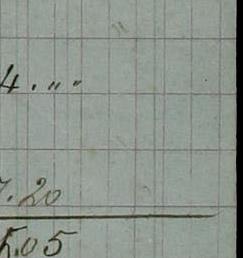 4. " "
7.20
5.05